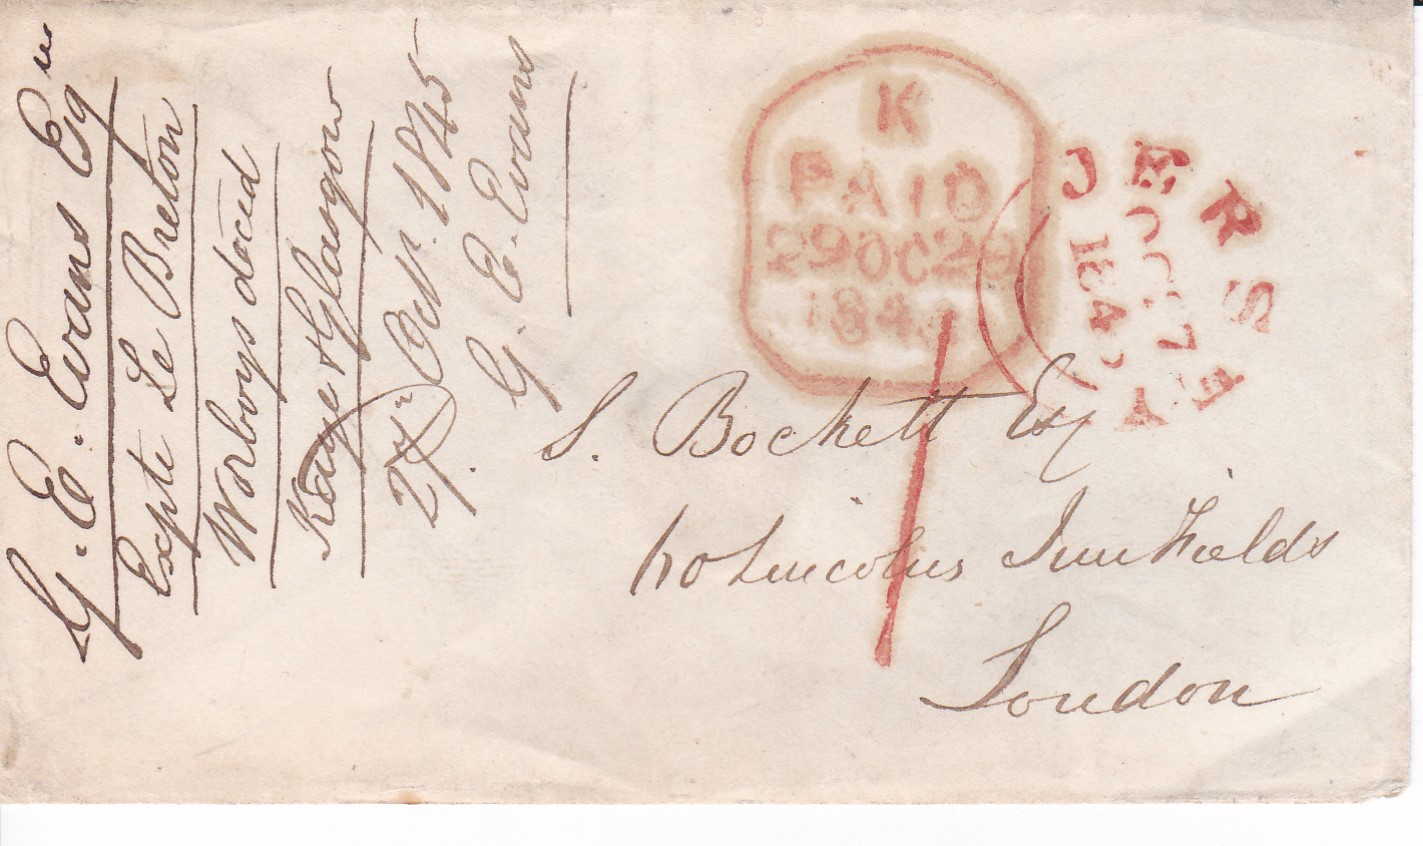 G. E. Evans Esqre
Exp te Le Breton
Worboys deced
Kaye & Glasgow
27th Octr. 1845
G. E. Evans
K
PAID
29 OC 29
184
JERSEY
OC 27
1845
S. Bockett Esq
60 Lincolns Inn Fields
London
1